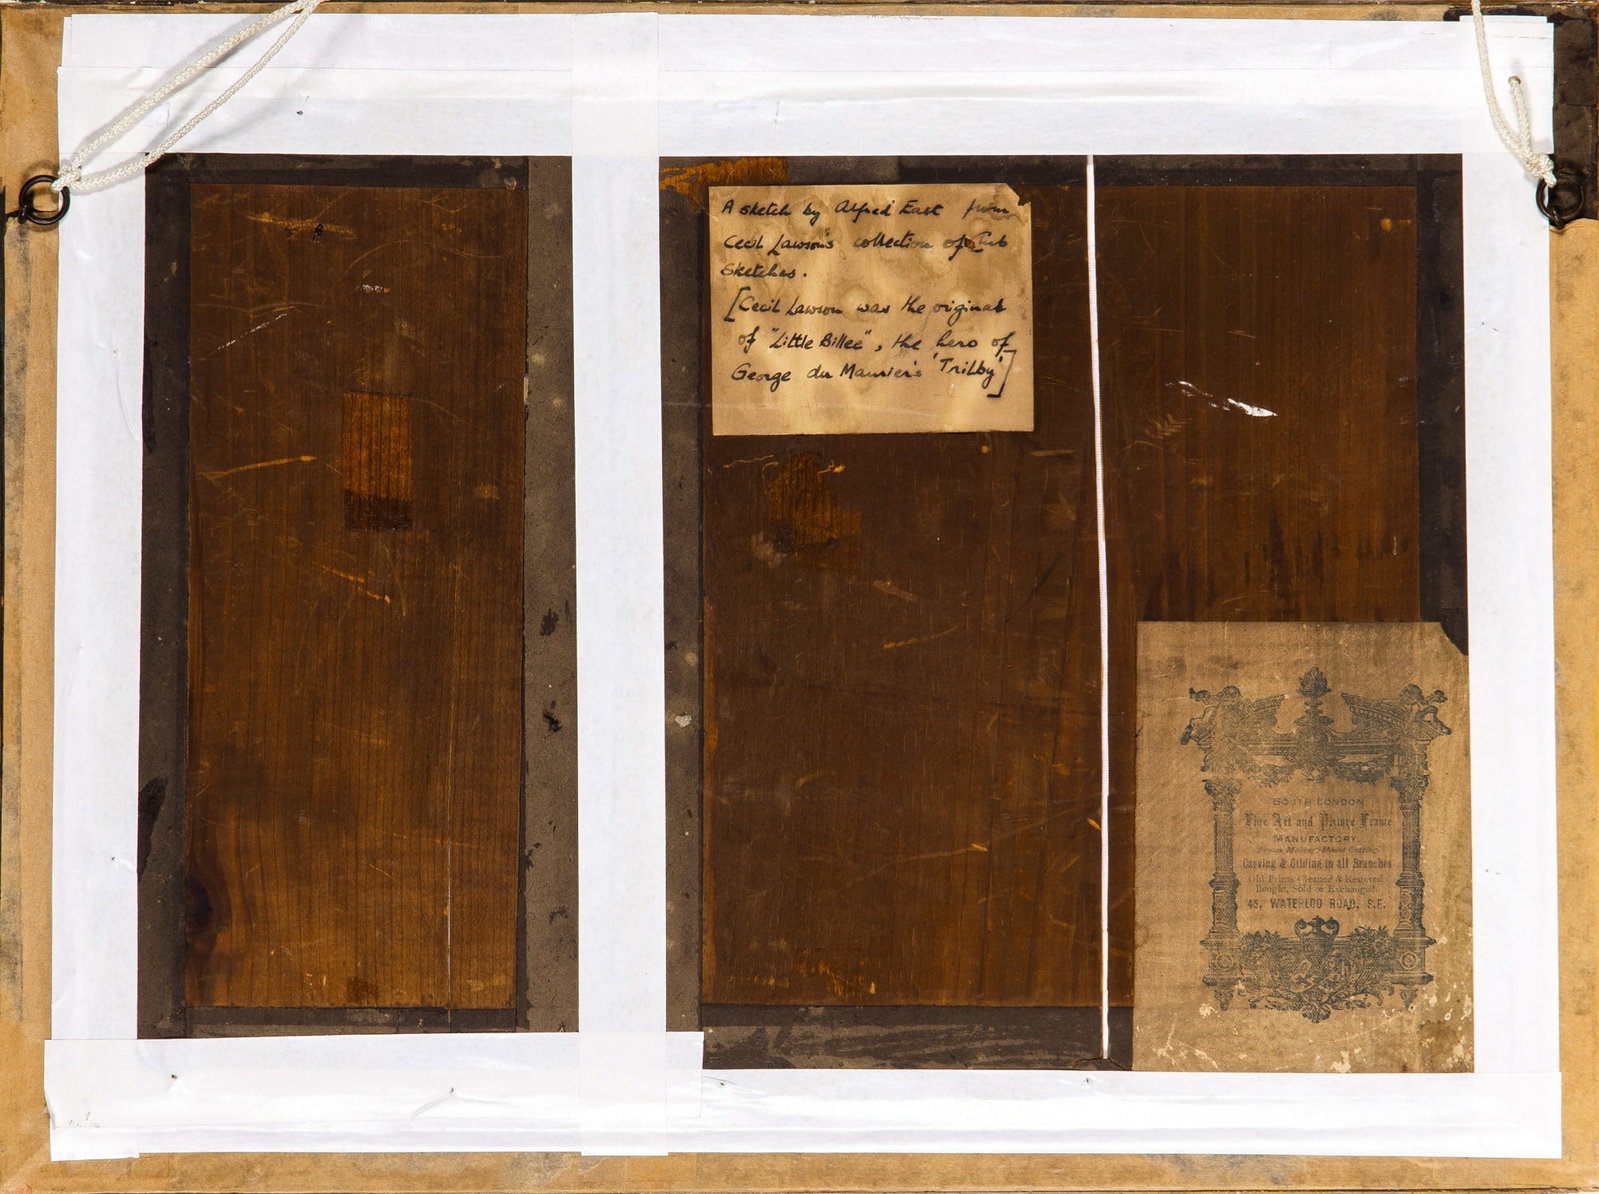 A sketch by Alfred East from
Cecil Lawson's collection of Cub
Sketches.
[Cecil Lawson was the original
of "Little Billee", the hero of
George du Maurier's 'Trilby']
SOUTH LONDON
Fine Art and Picture Frame
MANUFACTORY
Mount Cutting,
Carving & Gilding in all Branches
Old Prints Cleaned & Restored
Bought, Sold or Exchanged.
45, WATERLOO ROAD, S.E.